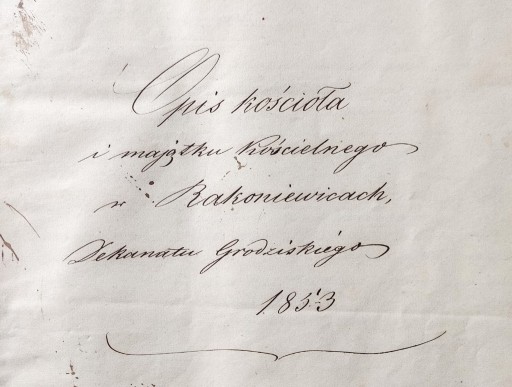 Opis kościoła
i majątku Kościelnego
w Rakoniewicach,
Dekanatu Grodziskiego
1853